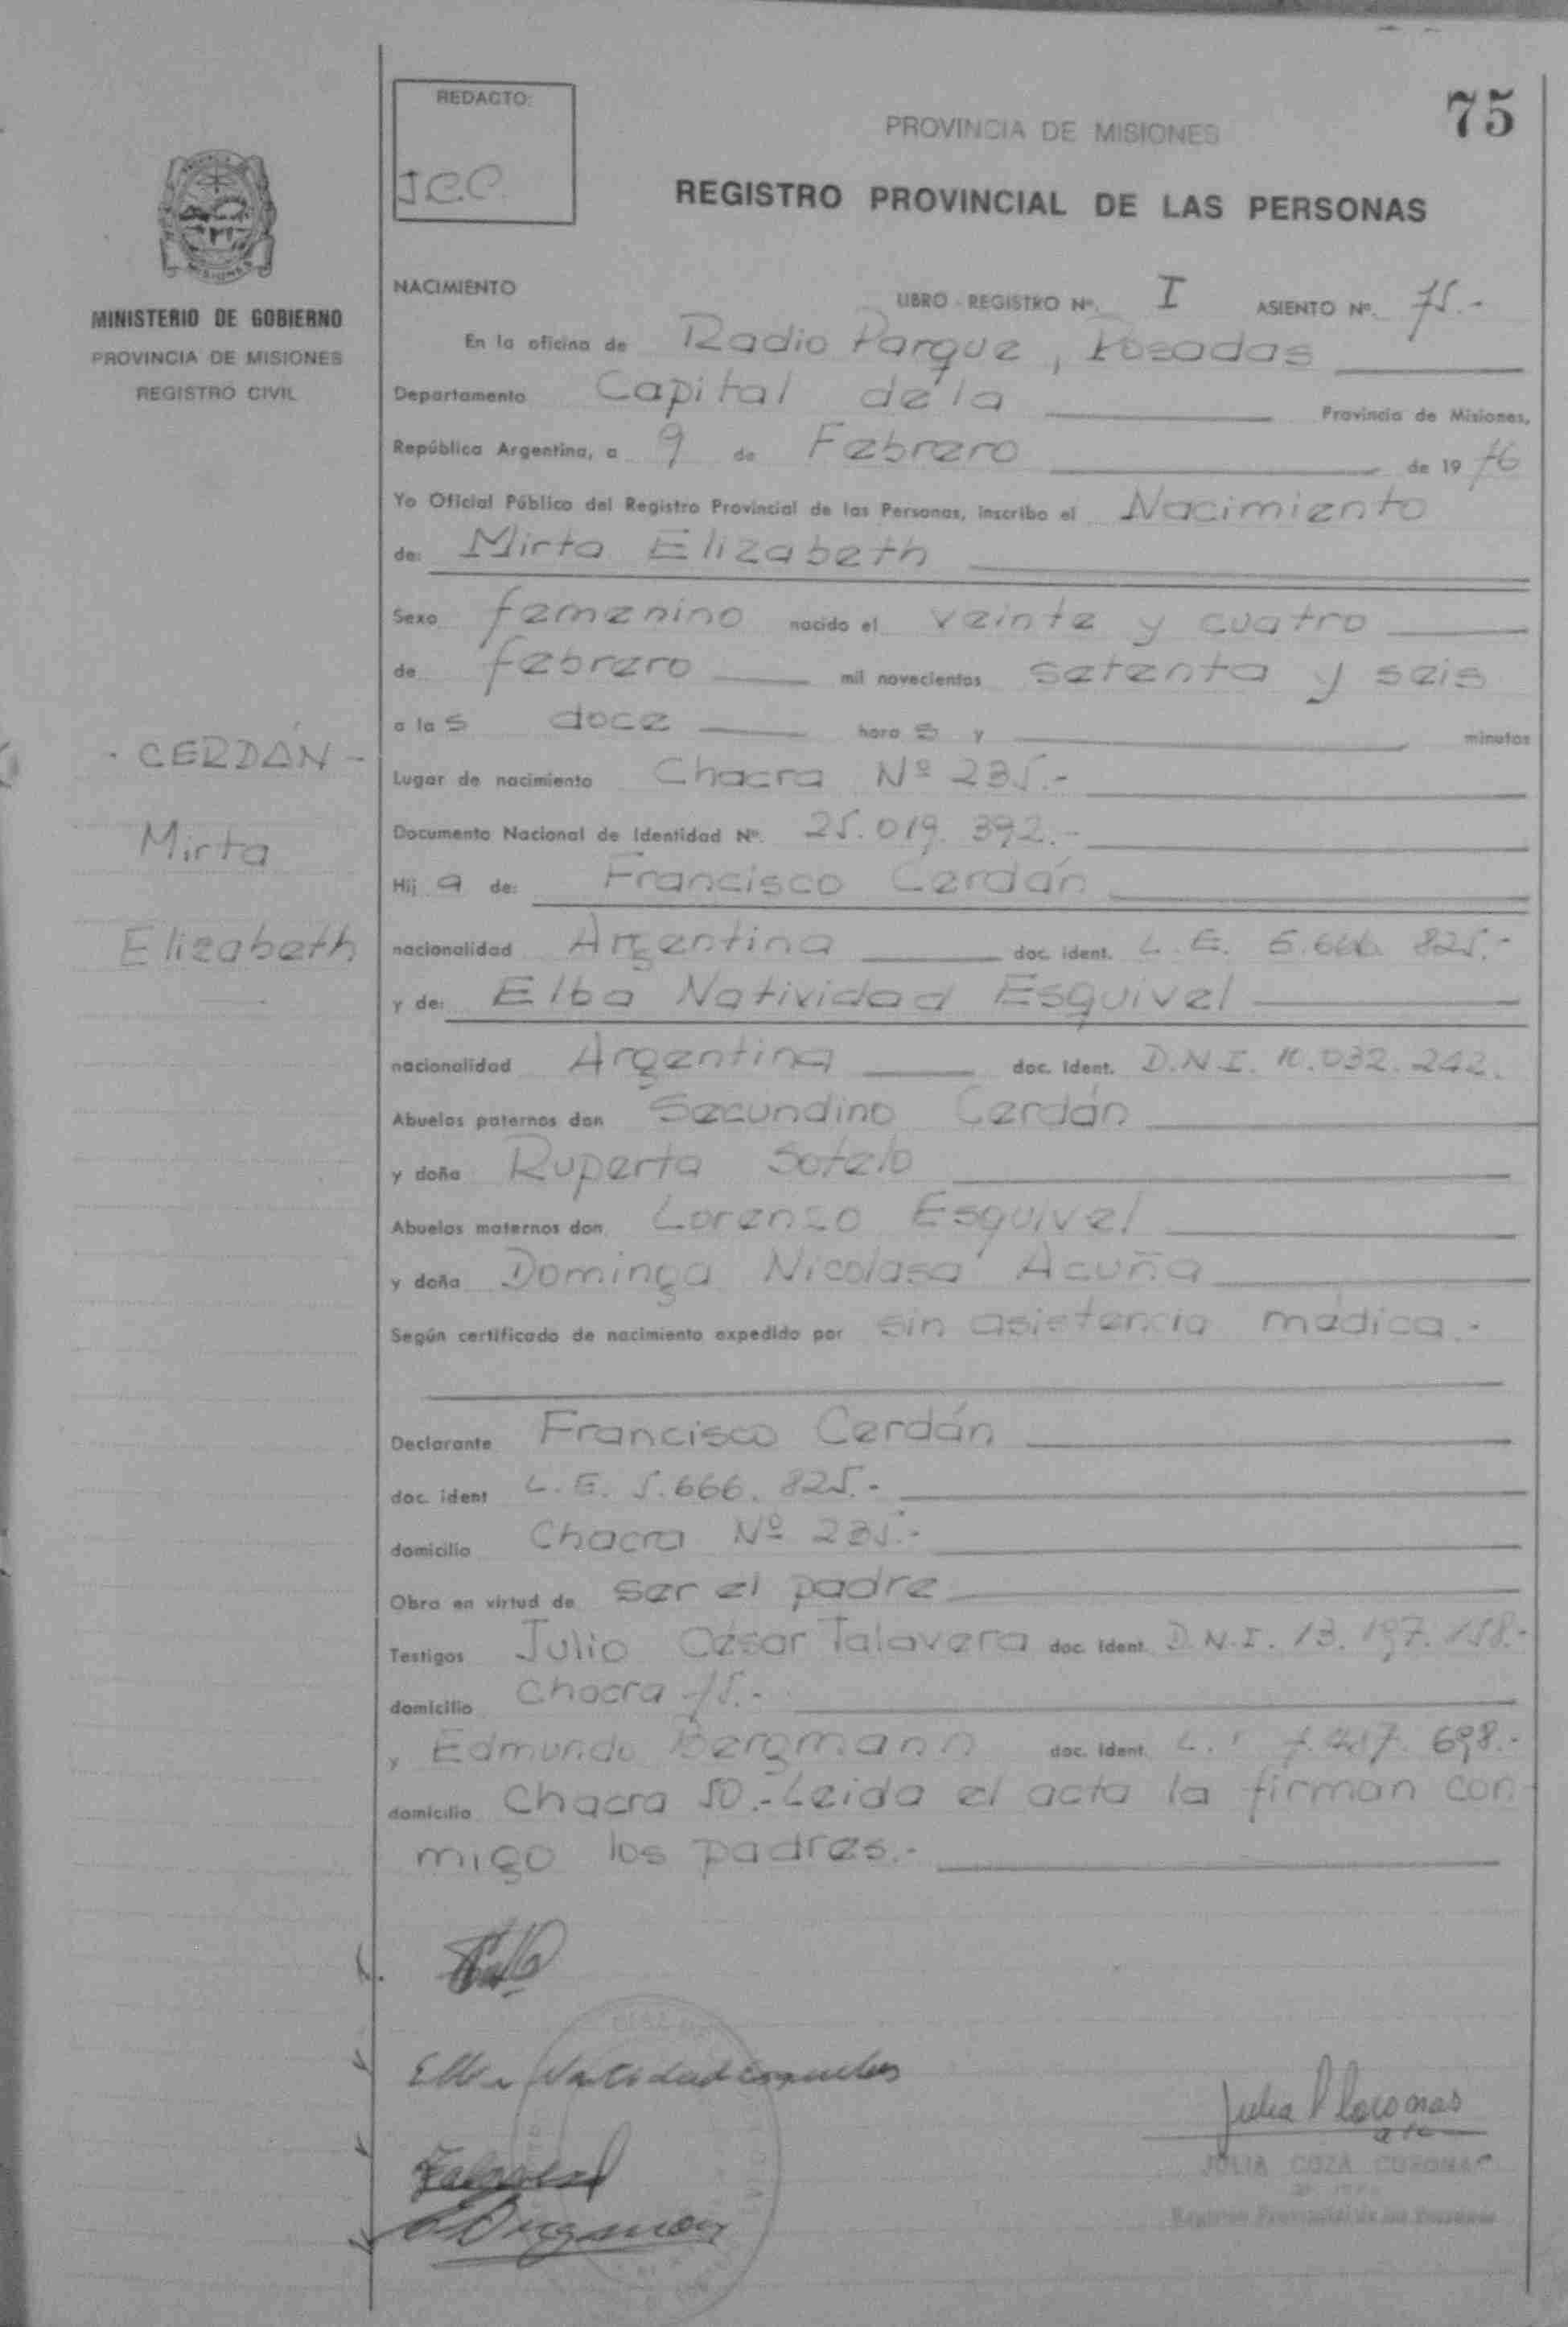 REDACTO:
J.C.C.
75
PROVINCIA DE MISIONES
REGISTRO PROVINCIAL DE LAS PERSONAS
MISIONES
MINISTERIO DE GOBIERNO
PROVINCIA DE MISIONES
REGISTRO CIVIL
- CERDÁN -
Mirta
Elizabeth
NACIMIENTO
LIBRO - REGISTRO Nº. I ASIENTO Nº. 75.-
En la oficina de Radio Parque, Posadas
Departamento Capital de la Provincia de Misiones,
República Argentina, a 9 de Febrero de 19 76
Yo Oficial Público del Registro Provincial de las Personas, inscribo el Nacimiento
de: Mirta Elizabeth
Sexo femenino nacido el veinte y cuatro
de febrero mil novecientos setenta y seis
a las doce horas y minutos
Lugar de nacimiento Chacra Nº 235.-
Documento Nacional de Identidad Nº. 25.019.392.-
Hija de: Francisco Cerdán
nacionalidad Argentina doc. ident. L.E. 5.666.825.-
y de: Elba Natividad Esquivel
nacionalidad Argentina doc. ident. D.N.I. 10.032.242.
Abuelos paternos don Secundino Cerdán
y doña Ruperta Sotelo
Abuelos maternos don Lorenzo Esquivel
y doña Dominga Nicolasa Acuña
Según certificado de nacimiento expedido por sin asistencia médica.-
Declarante Francisco Cerdán
doc. ident L.E. 5.666.825.-
domicilio Chacra Nº 235.-
Obra en virtud de ser el padre
Testigos Julio César Talavera doc. ident. D.N.I. 13.197.158.-
domicilio Chacra 75.-
y Edmundo Bergmann doc. ident. 698.-
domicilio Chacra 50.- Leida el acta la firman con-
migo los padres.-
Elba Natividad Esquivel
Talavera
EBergmann
Julia
JULIA COZA CORONA
Registro Provincial de las Personas